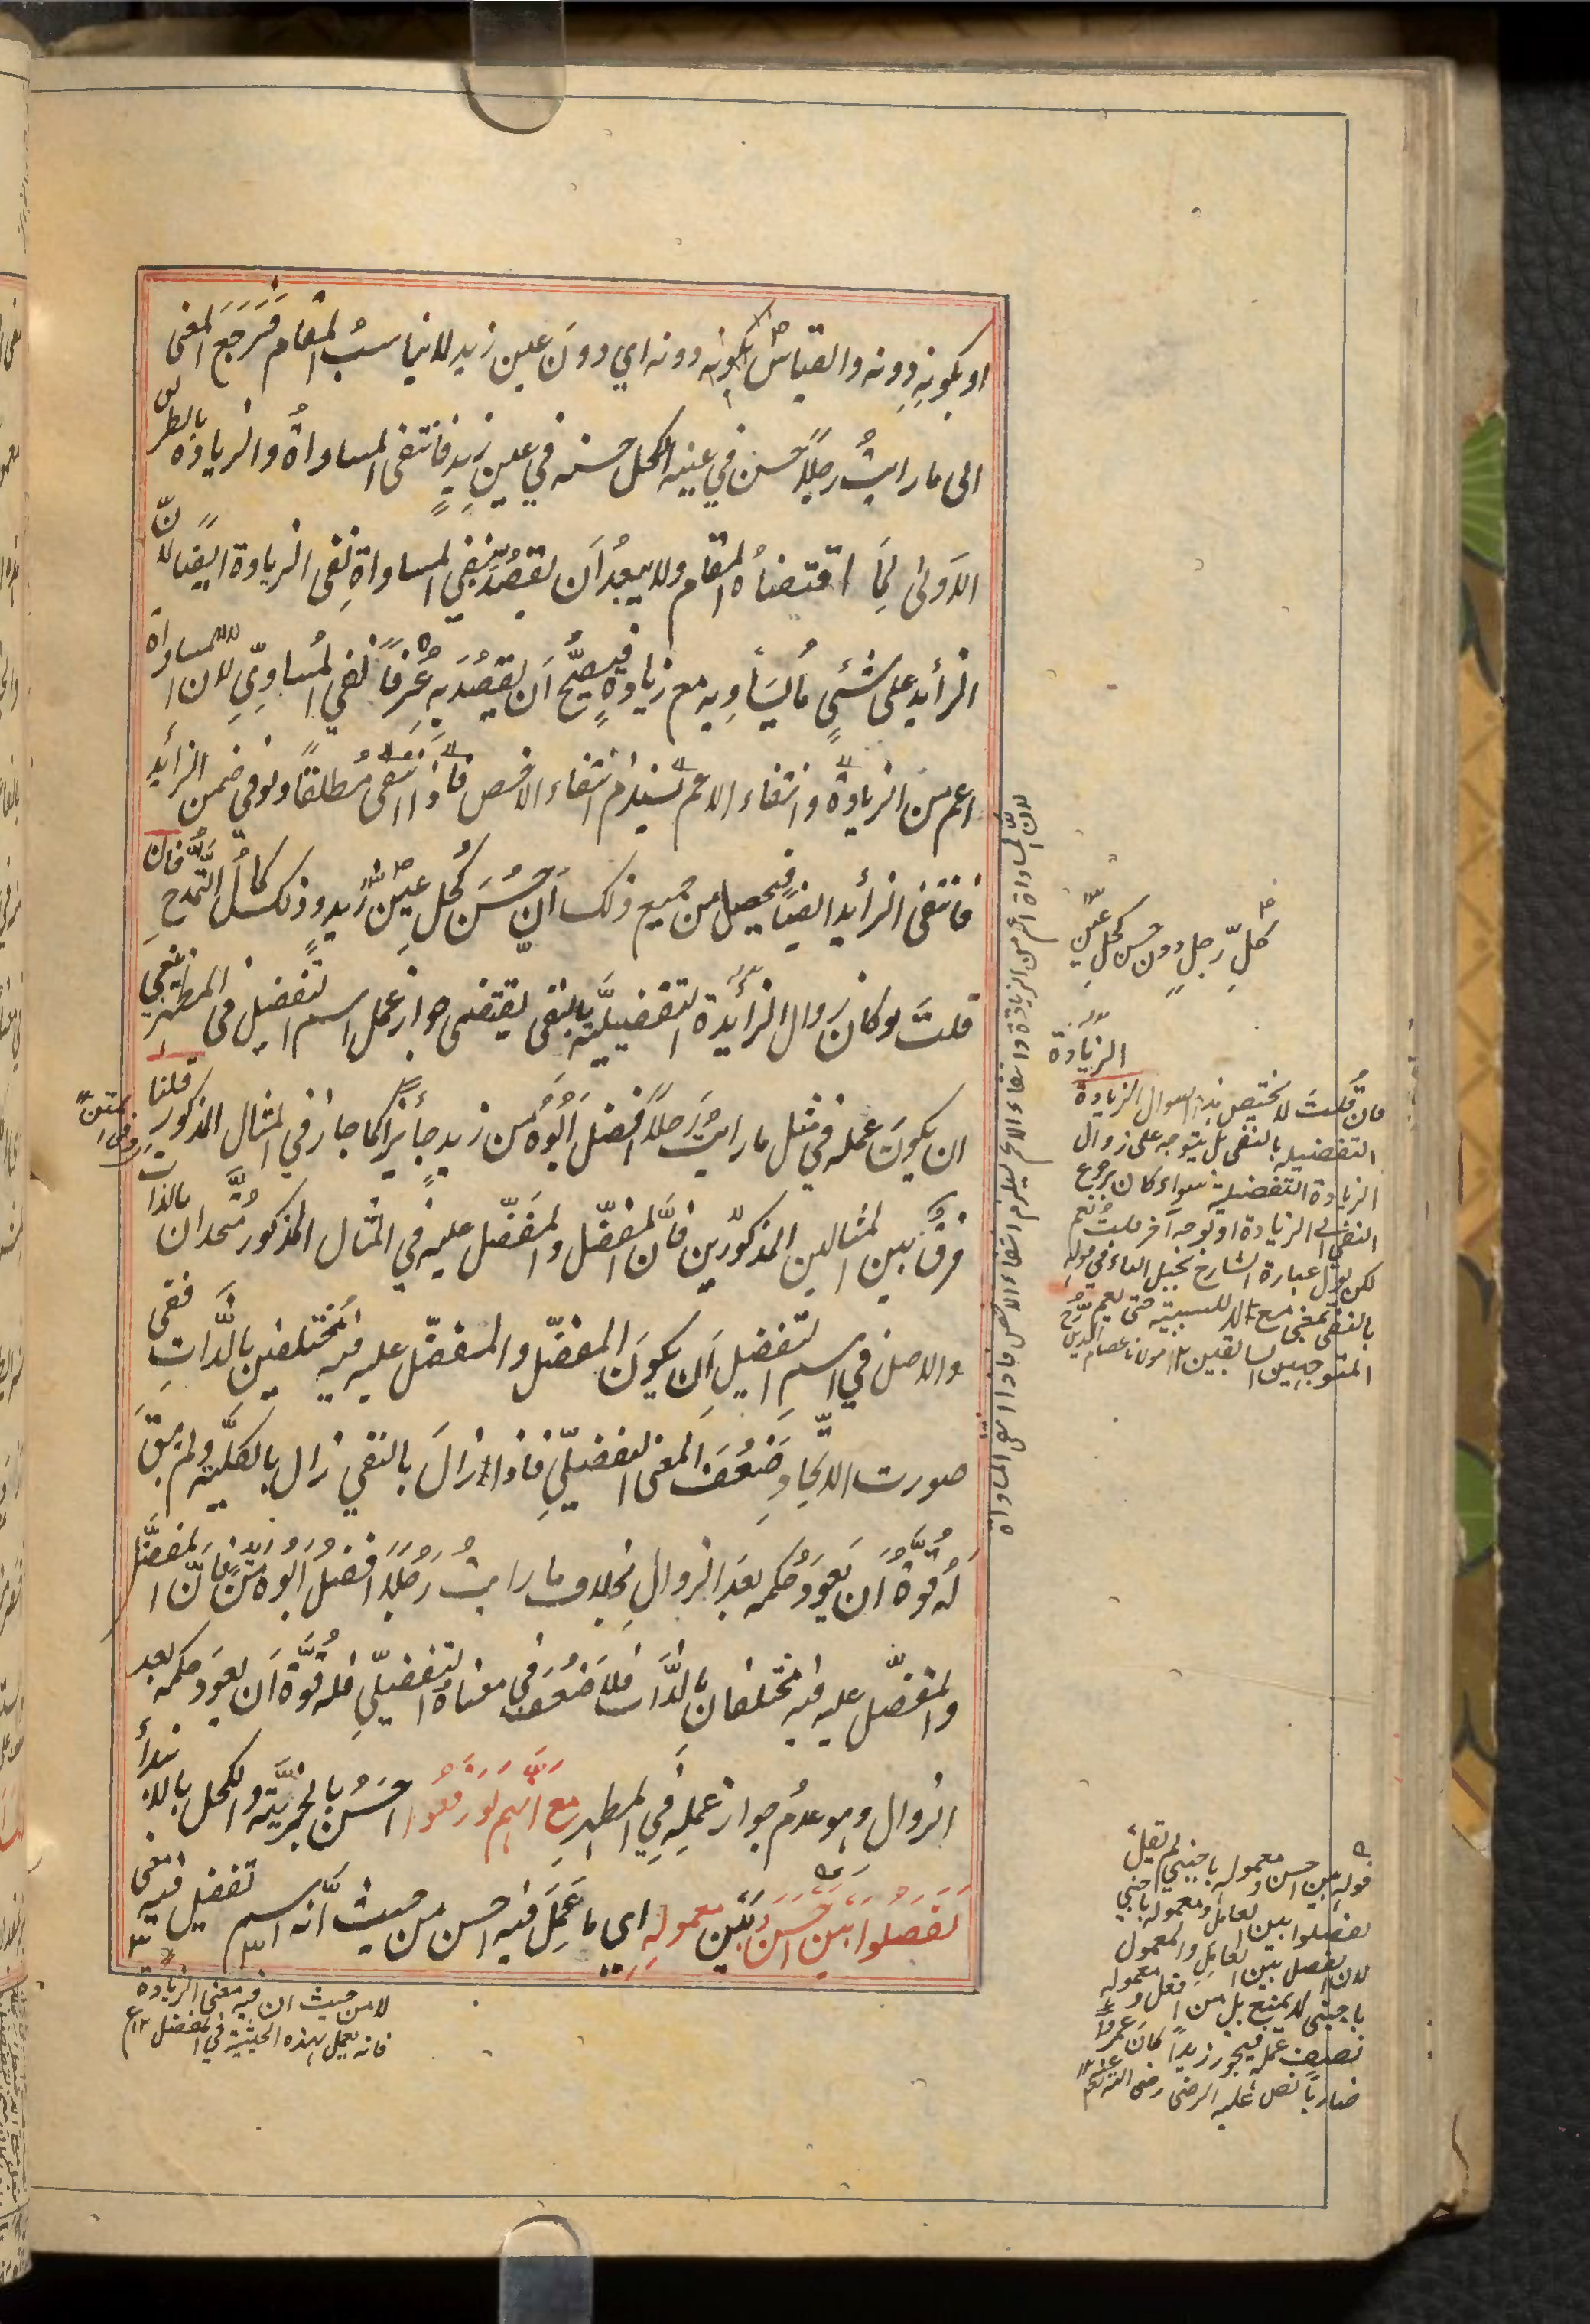 او بكونه دونه والقياس بكونه دونه اي دون عين زيد لا يناسب المقام فرجع المعنى
الى ما رايت رجلا حسن في عينه الكحل حسنه في عين زيد فانتفى المساواة والزيادة بالطريق
الاولى لما اقتضاه المقام ولا يبعد ان يقصد بنفي المساواة نفى الزيادة ايضا لان
الزائد على شئي ما يساويه مع زيادة فيصح ان يقصد به عرفا نفي المساوي لان المساواة
اعم من الزيادة وانتفاء الاعم يستلزم انتفاء الاخص فاذا انتفى مطلقا ولو في ضمن الزائد
فانتفى الزائد ايضا فيحصل من جميع ذلك ان حسن كحل عين زيد وذلك كمال التمدح فان
قلت لو كان زوال الزائدة التفضيلية بالنفى يقتضى جواز عمل اسم التفضيل في المظهر ينبغي
ان يكون عمله في مثل ما رايت رجلا افضل ابوه من زيد جائزا كما جاز في المثال المذكور قلنا
فرق بين المثالين المذكورين فان المفضل والمفضل عليه في المثال المذكور متحدان بالذات
والاصل في اسم التفضيل ان يكون المفضل والمفضل عليه فيه مختلفين بالذات ففى
صورت الاتحاد ضعف المعنى التفضيلي فاذا زال بالنفي زال بالكلية ولم يبق
له قوة ان يعود حكمه بعد الزوال بخلاف ما رايت رجلا افضل ابوه من زيد فان المفضل
والمفضل عليه فيه مختلفان بالذات فلا ضعف في معناه التفضيلي فله قوة ان يعود حكمه بعد
الزوال وهو عدم جواز عمله في المظهر مع انهم لو رفعوا احسن بالخبرية والكحل بالابتداء
لفصلوا بين احسن وبين معموله اي ما عمل فيه احسن من حيث انه اسم تفضيل فيه معنى
لا من حيث ان فيه معنى الزيادة
فانه يعمل بهذه الحيثية في المفضل ١٢ع
لان المساواة اعم من الزيادة وانتفاء الاعم يستلزم انتفاء الاخص
كل رجل دون حسن كحل عين
الزيادة
فان قلت لا يختص بذا السوال الزيادة
التفضيلية بالنفى بل يتوجه على زوال
الزيادة التفضيلية سواء كان برجوع
النفي الى الزيادة او لوجه آخر قلت نعم
لكن يؤل عبارة الشارح بجعل الباء في قوله
بالنفى بمعنى مع لا للسببية حتى يعم
المتوجهين السابقين ١٢ مولانا عصام الدين
قوله بين احسن ومعموله باجنبي لم يقل
لفصلوا بين العامل ومعموله باجنبي
لان الفصل بين العامل والمعمول
باجنبي لا يمتنع بل من افعل ومعموله
لضعف عمله فيجوز زيدا كان عمرو
ضاربا نص عليه الرضي رضى الله عنه ١٢